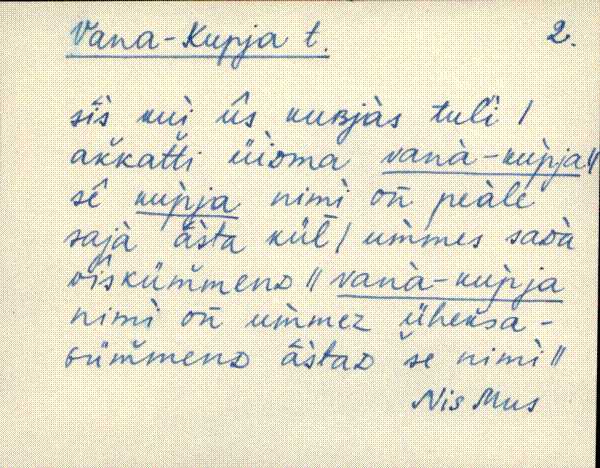 Vana-Kupja t. 2.
sìs kui ûs kuʙjàs tulì /
ak̆kat̆ti üìᴅma vanà-kùpja //
sê kùpja nimì on̆ peàle
sajà âsta kül̆ / um̀mes saᴅà
vîskŭm̆menᴅ // vanà-kùpja
nimì on̆ um̀mez üheksa-
kŭm̆menᴅ âstaᴅ se nimì //
Nis Mus